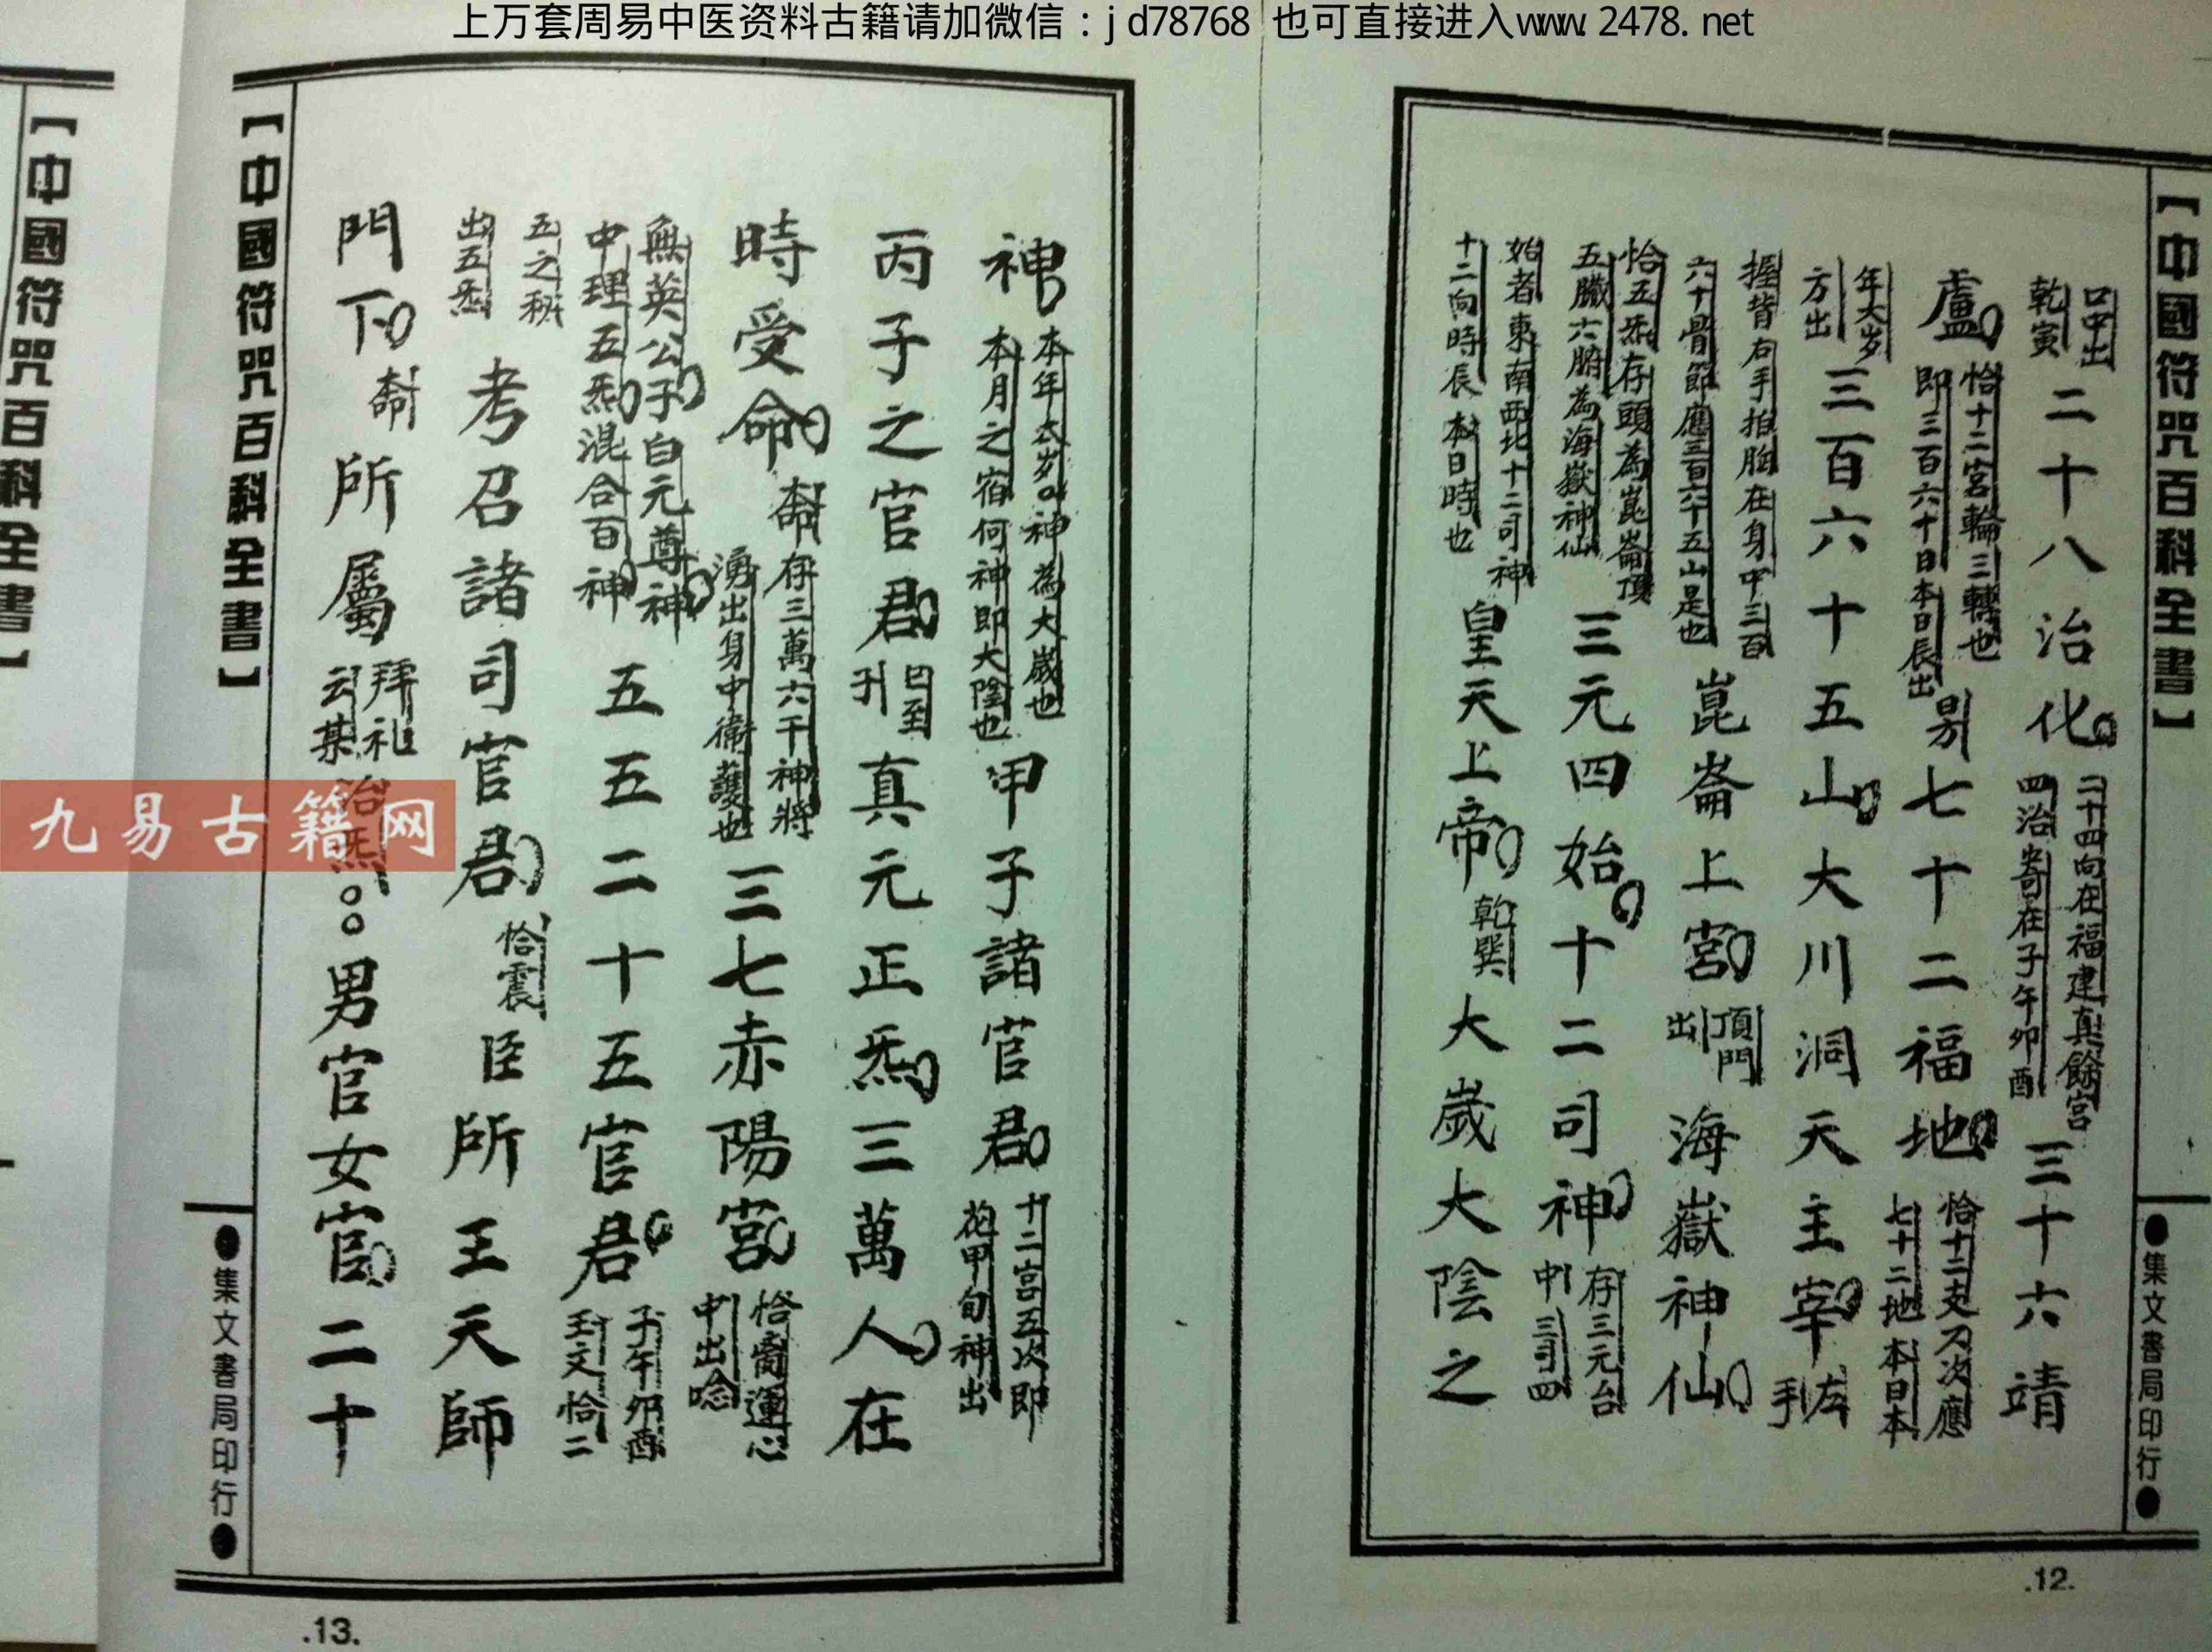 上万套周易中医资料古籍请加微信：jd78768 也可直接进入www.2478.net
【中國符咒百科全書】
●集文書局印行●
口中出
乾寅
二十八治化
二十四向在福建真餘宮
四治寄在子午卯酉
三十六靖
盧
恰十二宮輪三轉也
即三百六十日本日辰出
别七十二福地
恰十二支刀次應
七十二地本日本
年大岁
方出
三百六十五山大川洞天主宰
左
手
握背右手拍胸在身中三百
六十骨節應三百六十五山是也
崑崙上宮
頂門
出
海嶽神仙
恰五炁存頭為崑崙頂
五臟六腑為海嶽神仙
三元四始十二司神
存三元台
中三司四
始者東南西北十二司神
十二向時辰本日時也
皇天上帝
乾巽
大歲大陰之
.12.
神
本年太岁神為大歲也
本月之宿何神即大陰也
甲子諸官君
十二宮五次即
花甲旬神出
丙子之官君
曰至
真元正炁三萬人在
時受命
存三萬六千神將
湧出身中衞護也
三七赤陽宮
恰斋運心
中出唸
無英公子白元尊神
中理五炁混合百神
五五二十五官君
子午卯酉
玉文恰二
五之秘
出五炁
考召諸司官君
恰震
臣所王天師
門下
所屬
拜礼
云某
治炁
男官女官二十
【中國符咒百科全書】
●集文書局印行●
.13.
【中國符咒百科全書】
九易古籍网